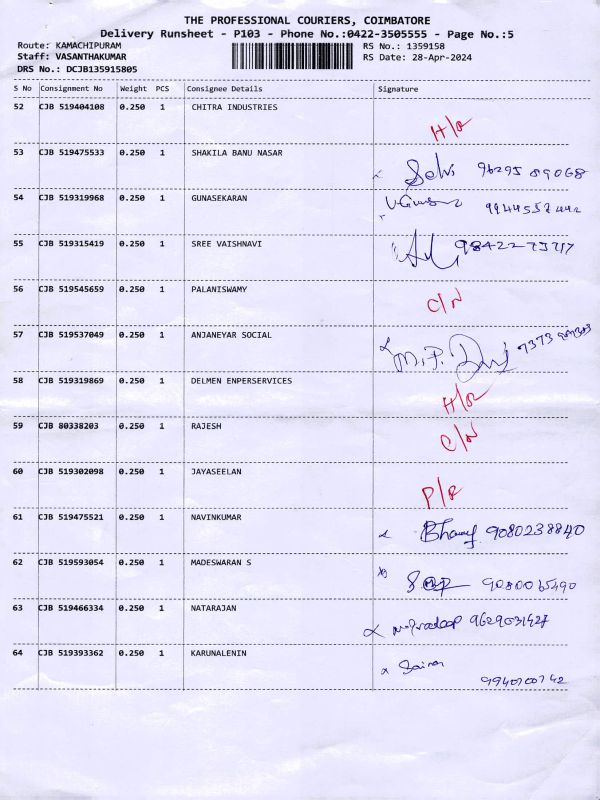 THE PROFESSIONAL COURIERS, COIMBATORE
Delivery Runsheet - P103 - Phone No.:0422-3505555 - Page No.:5
Route: KAMACHIPURAM RS No.: 1359158
Staff: VASANTHAKUMAR RS Date: 28-Apr-2024
DRS No.: DCJB135915805
S No Consignment No Weight PCS Consignee Details Signature
52 CJB 519404108 0.250 1 CHITRA INDUSTRIES
53 CJB 519475533 0.250 1 SHAKILA BANU NASAR Selvi 96295 89068
54 CJB 519319968 0.250 1 GUNASEKARAN 9944557442
55 CJB 519315419 0.250 1 SREE VAISHNAVI
56 CJB 519545659 0.250 1 PALANISWAMY C/N
57 CJB 519537049 0.250 1 ANJANEYAR SOCIAL M.P.
58 CJB 519319869 0.250 1 DELMEN ENPERSERVICES
59 CJB 80338203 0.250 1 RAJESH C/N
60 CJB 519302098 0.250 1 JAYASEELAN
61 CJB 519475521 0.250 1 NAVINKUMAR 9080238840
62 CJB 519593054 0.250 1 MADESWARAN S 9080065490
63 CJB 519466334 0.250 1 NATARAJAN 9629031427
64 CJB 519393362 0.250 1 KARUNALENIN
9940700742